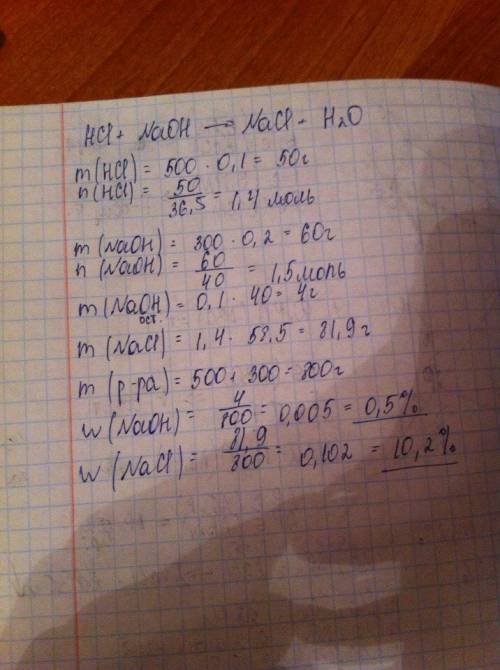 HCl + NaOH → NaCl + H₂O
m (HCl) = 500 · 0,1 = 50г
n (HCl) = 50/36,5 = 1,4 моль
m (NaOH) = 300 · 0,2 = 60г
n (NaOH) = 60/40 = 1,5 моль
m (NaOH) ост. = 0,1 · 40 = 4г
m (NaCl) = 1,4 · 58,5 = 81,9 г
m (р-ра) = 500 + 300 = 800г
w (NaOH) = 4/800 = 0,005 = 0,5%
w (NaCl) = 81,9/800 = 0,102 = 10,2%